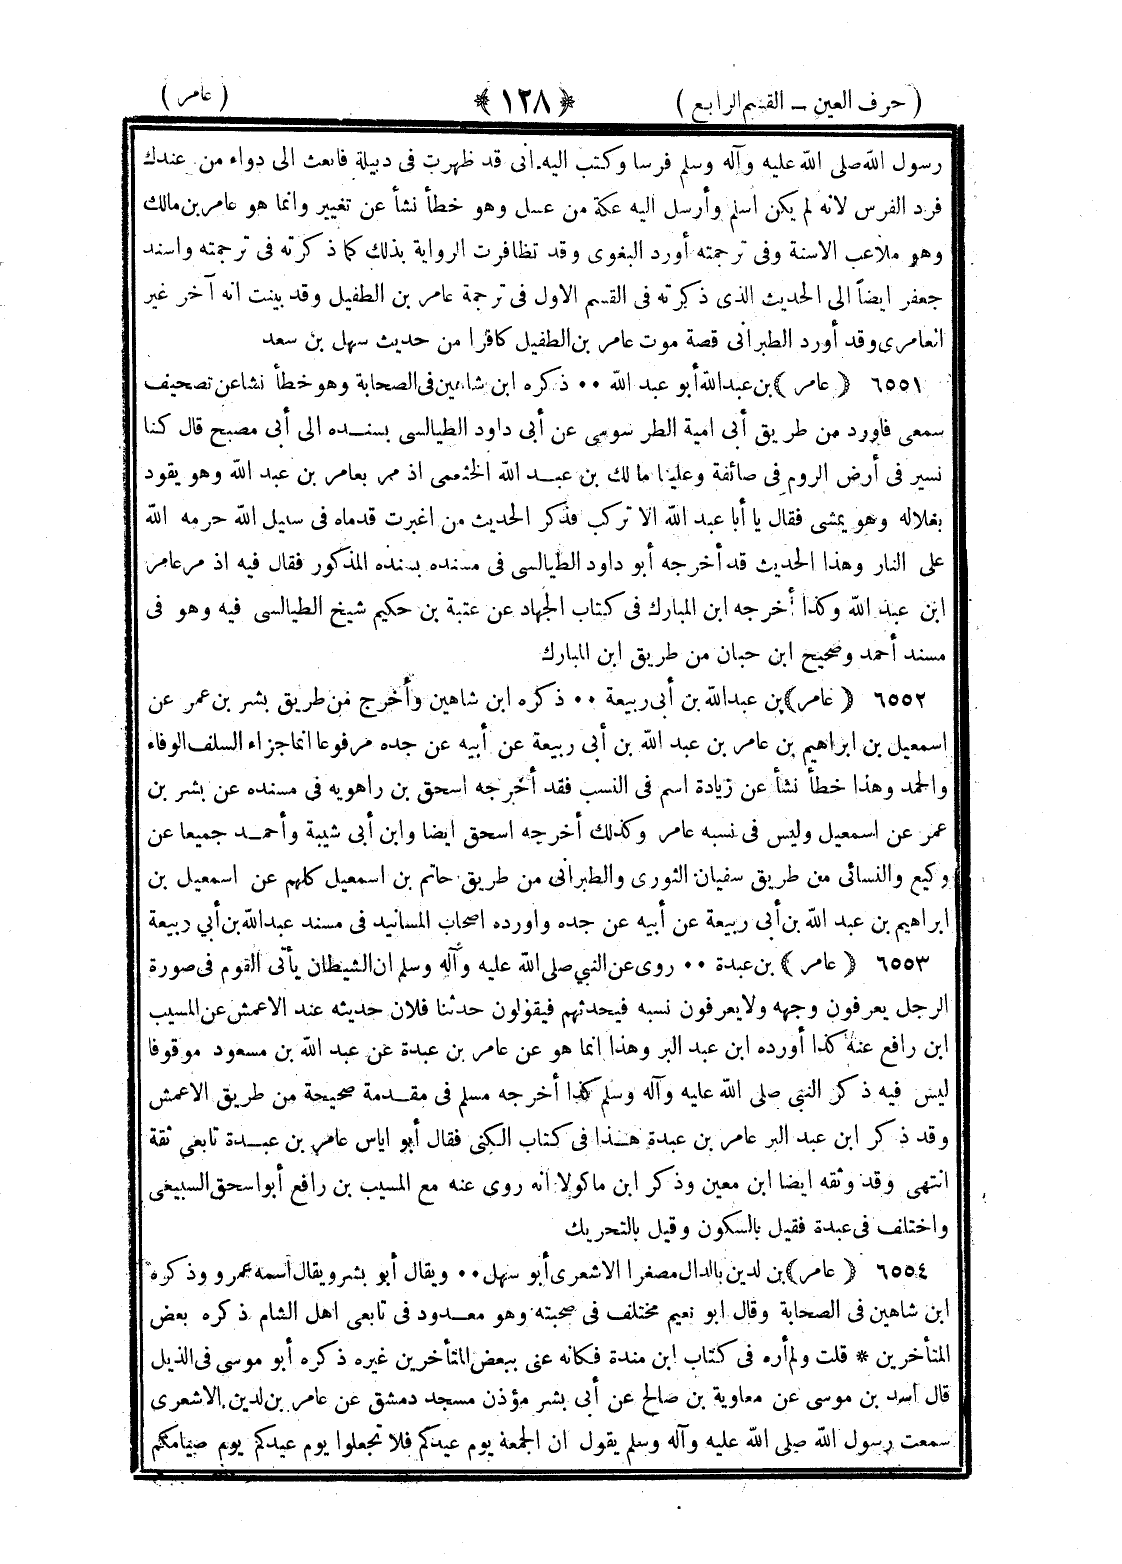 ( حرف العين – القسم الرابع ) ﴿ ١٢٨ ﴾ ( عامر )
رسول الله صلى الله عليه وآله وسلم فرسا وكتب اليه انى قد ظهرت فى دبيلة فابعث الى دواء من عندك
فرد الفرس لانه لم يكن اسلم وأرسل اليه عكة من عسل وهو خطأ نشأ عن تغيير وانما هو عامر بن مالك
وهو ملاعب الاسنة وفى ترجمته أورد البغوى وقد تظافرت الرواية بذلك كما ذكرته فى ترجمته واسند
جعفر ايضاً الى الحديث الذى ذكرته فى القسم الاول فى ترجمة عامر بن الطفيل وقد بينت انه آخر غير
العامرى وقد أورد الطبرانى قصة موت عامر بن الطفيل كافرا من حديث سهل بن سعد
٦٥٥١ ﴿ عامر ﴾ بن عبدالله أبو عبد الله ٠٠ ذكره ابن شاهين فى الصحابة وهو خطأ نشا عن تصحيف
سمعى فاورد من طريق أبى امية الطرسوسى عن أبى داود الطيالسى بسنده الى أبى مصبح قال كنا
نسير فى أرض الروم فى صائفة وعلينا مالك بن عبد الله الخثعمى اذ مر بعامر بن عبد الله وهو يقود
بغلاله وهو يمشى فقال يا أبا عبد الله الا تركب فذكر الحديث من اغبرت قدماه فى سبيل الله حرمه الله
على النار وهذا الحديث قد أخرجه أبو داود الطيالسى فى مسنده بسنده المذكور فقال فيه اذ مر عامر
ابن عبد الله وكذا أخرجه ابن المبارك فى كتاب الجهاد عن عتبة بن حكيم شيخ الطيالسى فيه وهو فى
مسند أحمد وصحيح ابن حبان من طريق ابن المبارك
٦٥٥٢ ﴿ عامر ﴾ بن عبدالله بن أبى ربيعة ٠٠ ذكره ابن شاهين وأخرج من طريق بشر بن عمر عن
اسمعيل بن ابراهيم بن عامر بن عبد الله بن أبى ربيعة عن أبيه عن جده مرفوعا انما جزاء السلف الوفاء
والحمد وهذا خطأ نشأ عن زيادة اسم فى النسب فقد أخرجه اسحق بن راهويه فى مسنده عن بشر بن
عمر عن اسمعيل وليس فى نسبه عامر وكذلك أخرجه اسحق ايضا وابن أبى شيبة وأحمد جميعا عن
وكيع والنسائى من طريق سفيان الثورى والطبرانى من طريق حاتم بن اسمعيل كلهم عن اسمعيل بن
ابراهيم بن عبد الله بن أبى ربيعة عن أبيه عن جده واورده اصحاب المسانيد فى مسند عبدالله بن أبي ربيعة
٦٥٥٣ ﴿ عامر ﴾ بن عبدة ٠٠ روى عن النبي صلى الله عليه وآله وسلم ان الشيطان يأتى القوم فى صورة
الرجل يعرفون وجهه ولا يعرفون نسبه فيحدثهم فيقولون حدثنا فلان حديثه عند الاعمش عن المسيب
ابن رافع عنه كذا أورده ابن عبد البر وهذا انما هو عن عامر بن عبدة عن عبد الله بن مسعود موقوفا
ليس فيه ذكر النبى صلى الله عليه وآله وسلم كذا أخرجه مسلم فى مقدمة صحيحة من طريق الاعمش
وقد ذكر ابن عبد البر عامر بن عبدة هذا فى كتاب الكنى فقال أبو اياس عامر بن عبدة تابعى ثقة
انتهى وقد وثقه ايضا ابن معين وذكر ابن ماكولا انه روى عنه مع المسيب بن رافع أبو اسحق السبيعى
واختلف فى عبدة فقيل بالسكون وقيل بالتحريك
٦٥٥٤ ﴿ عامر ﴾ بن لدين بالدال مصغرا الاشعرى أبو سهل ٠٠ ويقال أبو بشر ويقال اسمه عمرو وذكره
ابن شاهين فى الصحابة وقال ابو نعيم مختلف فى صحبته وهو معدود فى تابعى اهل الشام ذكره بعض
المتأخرين * قلت ولم أره فى كتاب ابن مندة فكانه عنى ببعض المتأخرين غيره ذكره أبو موسى فى الذيل
قال أسد بن موسى عن معاوية بن صالح عن أبى بشر مؤذن مسجد دمشق عن عامر بن لدين الاشعرى
سمعت رسول الله صلى الله عليه وآله وسلم يقول ان الجمعة يوم عيدكم فلا تجعلوا يوم عيدكم يوم صيامكم